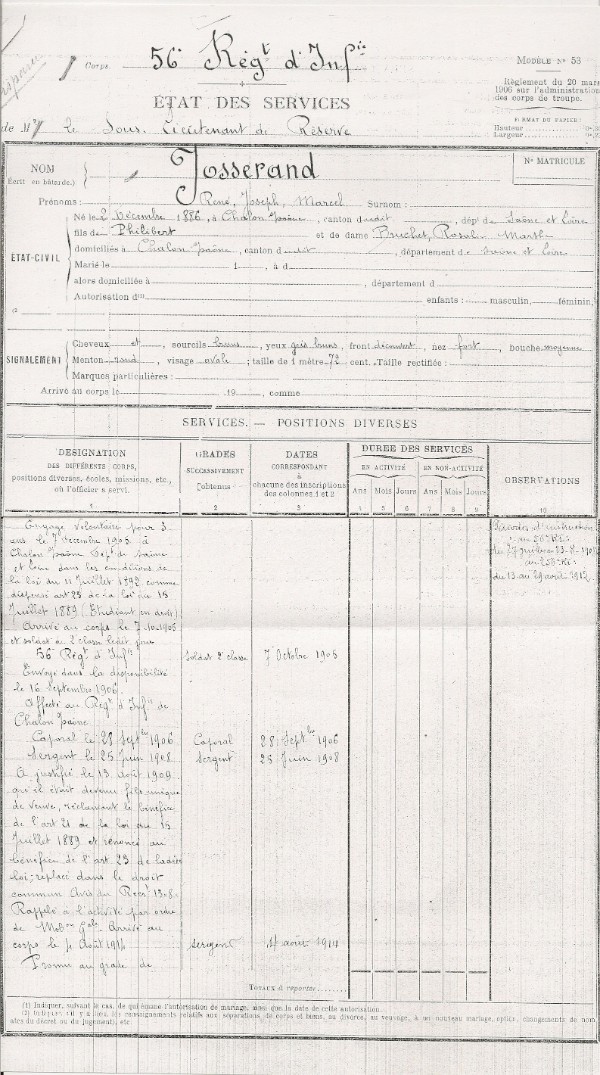 Corps. 56e Régt d'Infie
MODÈLE N° 53
Règlement du 20 mars
1906 sur l'administration
des corps de troupe.
FORMAT DU PAPIER:
Hauteur
Largeur
ÉTAT DES SERVICES
de M. le Sous-Lieutenant de Réserve
NOM Josserand
Écrit en bâtarde.)
N° MATRICULE
Prénoms: René, Joseph, Marcel Surnom:
ÉTAT-CIVIL
Né le 2 Décembre 1886, à Chalon s/Saône, canton dudit, dépt de Saône et Loire
fils de Philibert et de dame Bruchet, Marthe
domiciliés à Chalon s/Saône, canton dudit, département de Saône et Loire
Marié le 1, à d
alors domiciliée à, département d
Autorisation d(1) enfants: masculin, féminin,
SIGNALEMENT
Cheveux et, sourcils bruns, yeux gris bruns, front découvert, nez fort, bouche moyenne
Menton rond, visage ovale; taille de 1 mètre 72 cent. Taille rectifiée:
Marques particulières:
Arrivé au corps le 19, comme
SERVICES. — POSITIONS DIVERSES
DÉSIGNATION
DES DIFFÉRENTS CORPS,
positions diverses, écoles, missions, etc.,
où l'officier a servi.
1
GRADES
SUCCESSIVEMENT
obtenus
2
DATES
CORRESPONDANT
à
chacune des inscriptions
des colonnes 1 et 2
3
DURÉE DES SERVICES
EN ACTIVITÉ EN NON-ACTIVITÉ
Ans Mois Jours Ans Mois Jours
4 5 6 7 8 9
OBSERVATIONS
10
Engagé volontaire pour 3
ans le 7 1905 à
Chalon s/Saône Dépt de Saône
et Loire dans les conditions de
la loi du 11 Juillet 1892 comme
dispensé art 23 de la loi du 15
Juillet 1889 (Étudiant en droit)
Arrivé au corps le 7-10-1905
et soldat de 2e classe ledit jour
56e Régt d'Infie soldat 2e classe 7 Octobre 1905
Envoyé dans la disponibilité
le 16 Septembre 1906.
Affecté au Régt d'Infie de
Chalon s/Saône
Caporal le 28 Septbre 1906 Caporal 28 Septbre 1906
Sergent le 25 Juin 1908 Sergent 25 Juin 1908
A justifié le 13 Août 1909
qu'il était devenu fils unique
de veuve, réclamant le bénéfice
de l'art 21 de la loi du 15
Juillet 1889 et renoncé au
bénéfice de l'art 23 de ladite
loi; replacé dans le droit
commun Avis du Recrt
Rappelé à l'activité par ordre
de Mobon Gale. Arrivé au
corps le 4 Août 1914 sergent 4 août 1914
Promu au grade de
Périodes d'instruction
au 56e R.I.
du 27 23-8-
au 256e R.I.
du 13 au 29 avril 1912
TOTAUX à reporter
(1) Indiquer, suivant le cas, de qui émane l'autorisation de mariage, ainsi que la date de cette autorisation.
(2) Indiquer s'il y a lieu, les renseignements relatifs aux séparations de corps et biens, au divorce, au veuvage, à un nouveau mariage, changements de nom
dates du décret ou du jugement), etc.